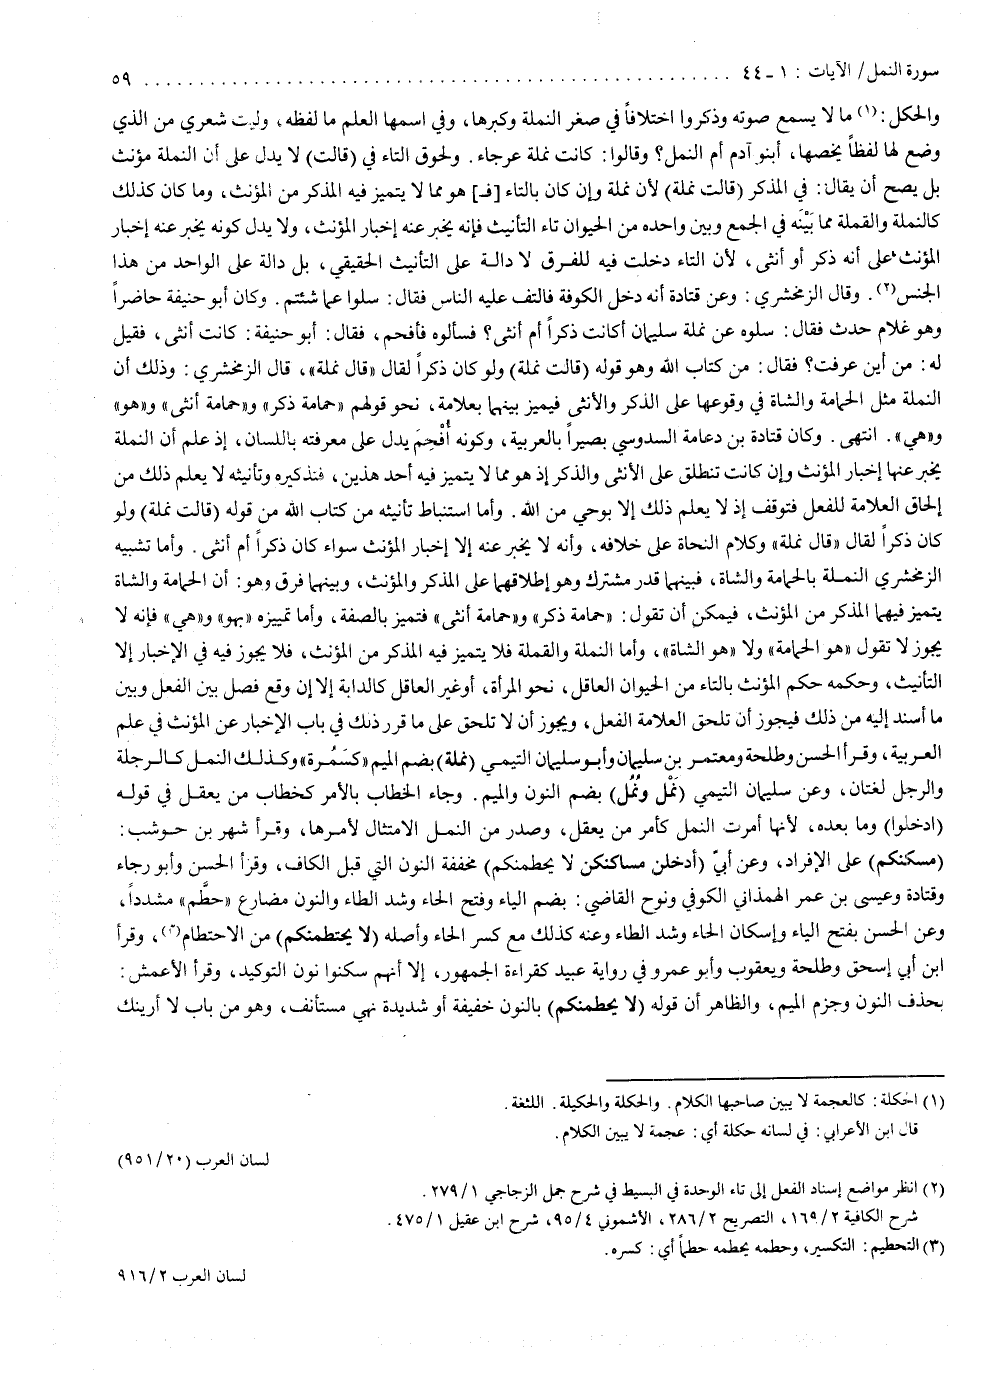 سورة النمل/ الآيات : ١ ـ ٤٤ ........................................................ ٥٩
والحكل :(١) ما لا يسمع صوته وذكروا اختلافاً في صغر النملة وكبرها، وفي اسمها العلم ما لفظه، وليت شعري من الذي
وضع لها لفظاً يخصها، أبنو آدم أم النمل؟ وقالوا: كانت نملة عرجاء. ولحوق التاء في (قالت) لا يدل على أن النملة مؤنث
بل يصح أن يقال: في المذكر (قالت نملة) لأن نملة وإن كان بالتاء [فـ] هو مما لا يتميز فيه المذكر من المؤنث، وما كان كذلك
كالنملة والقملة مما بَيْنَه في الجمع وبين واحده من الحيوان تاء التأنيث فإنه يخبر عنه إخبار المؤنث، ولا يدل كونه يخبر عنه إخبار
المؤنث على أنه ذكر أو أنثى، لأن التاء دخلت فيه للفرق لا دالة على التأنيث الحقيقي، بل دالة على الواحد من هذا
الجنس(٢). وقال الزمخشري: وعن قتادة أنه دخل الكوفة فالتف عليه الناس فقال: سلوا عما شئتم. وكان أبو حنيفة حاضراً
وهو غلام حدث فقال: سلوه عن نملة سليمان أكانت ذكراً أم أنثى؟ فسألوه فأفحم، فقال: أبو حنيفة: كانت أنثى، فقيل
له: من أين عرفت؟ فقال: من كتاب الله وهو قوله (قالت نملة) ولو كان ذكراً لقال «قال نملة»، قال الزمخشري: وذلك أن
النملة مثل الحمامة والشاة في وقوعها على الذكر والأنثى فيميز بينهما بعلامة، نحو قولهم «حمامة ذكر» و«حمامة أنثى» و«هو»
و«هي». انتهى. وكان قتادة بن دعامة السدوسي بصيراً بالعربية، وكونه أُفْحِمَ يدل على معرفته باللسان، إذ علم أن النملة
يخبر عنها إخبار المؤنث وإن كانت تنطلق على الأنثى والذكر إذ هو مما لا يتميز فيه أحد هذين، فتذكيره وتأنيثه لا يعلم ذلك من
إلحاق العلامة للفعل فتوقف إذ لا يعلم ذلك إلا بوحي من الله. وأما استنباط تأنيثه من كتاب الله من قوله (قالت نملة) ولو
كان ذكراً لقال «قال نملة» وكلام النحاة على خلافه، وأنه لا يخبر عنه إلا إخبار المؤنث سواء كان ذكراً أم أنثى. وأما تشبيه
الزمخشري النملة بالحمامة والشاة، فبينهما قدر مشترك وهو إطلاقهما على المذكر والمؤنث، وبينهما فرق وهو: أن الحمامة والشاة
يتميز فيهما المذكر من المؤنث، فيمكن أن تقول: «حمامة ذكر» و«حمامة أنثى» فتميز بالصفة، وأما تمييزه «بهو» و«هي» فإنه لا
يجوز لا تقول «هو الحمامة» ولا «هو الشاة»، وأما النملة والقملة فلا يتميز فيه المذكر من المؤنث، فلا يجوز فيه في الإخبار إلا
التأنيث، وحكمه حكم المؤنث بالتاء من الحيوان العاقل، نحو المرأة، أو غير العاقل كالدابة إلا إن وقع فصل بين الفعل وبين
ما أسند إليه من ذلك فيجوز أن تلحق العلامة الفعل، ويجوز أن لا تلحق على ما قرر ذلك في باب الإخبار عن المؤنث في علم
العربية، وقرأ الحسن وطلحة ومعتمر بن سليمان وأبو سليمان التيمي (نملة) بضم الميم «كسَمُرة» وكذلك النمل كالرجلة
والرجل لغتان، وعن سليمان التيمي (نَمْل ونُمُل) بضم النون والميم. وجاء الخطاب بالأمر كخطاب من يعقل في قوله
(ادخلوا) وما بعده، لأنها أمرت النمل كأمر من يعقل، وصدر من النمل الامتثال لأمرها، وقرأ شهر بن حوشب:
(مسكنكم) على الإفراد، وعن أبيّ (أدخلن مساكنكن لا يحطمنكم) مخففة النون التي قبل الكاف، وقرأ الحسن وأبو رجاء
وقتادة وعيسى بن عمر الهمذاني الكوفي ونوح القاضي: بضم الياء وفتح الحاء وشد الطاء والنون مضارع «حطَّم» مشدداً،
وعن الحسن بفتح الياء وإسكان الحاء وشد الطاء وعنه كذلك مع كسر الحاء وأصله (لا يحتطمنكم) من الاحتطام(٣)، وقرأ
ابن أبي إسحق وطلحة ويعقوب وأبو عمرو في رواية عبيد كقراءة الجمهور، إلا أنهم سكنوا نون التوكيد، وقرأ الأعمش:
بحذف النون وجزم الميم، والظاهر أن قوله (لا يحطمنكم) بالنون خفيفة أو شديدة نهي مستأنف، وهو من باب لا أرينك
(١) الحكلة: كالعجمة لا يبين صاحبها الكلام. والحكلة والحكيلة. اللثغة.
قال ابن الأعرابي: في لسانه حكلة أي: عجمة لا يبين الكلام.
لسان العرب (٩٥١/٢٠)
(٢) انظر مواضع إسناد الفعل إلى تاء الوحدة في البسيط في شرح جمل الزجاجي ٢٧٩/١.
شرح الكافية ١٦٩/٢، التصريح ٢٨٦/٢، الأشموني ٩٥/٤، شرح ابن عقيل ٤٧٥/١.
(٣) التحطيم: التكسير، وحطمه يحطمه حطماً أي: كسره.
لسان العرب ٩١٦/٢